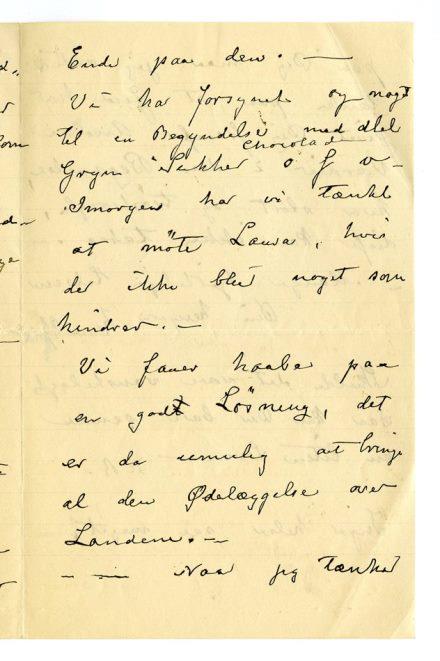 Ende paa den. —
Vi har forsynet og noget
til en Begyndelse med dlel
Chocolade
Gryn Sukker o f v —
Imorgen har vi tænkt
at möte Laura, hvis
der ikke blir noget som
hindrer. —
Vi faaer haabe paa
en godt Lösning, det
er da umulig at bringe
al den Ødelæggelse over
Landene. —
— — Naar jeg tænker